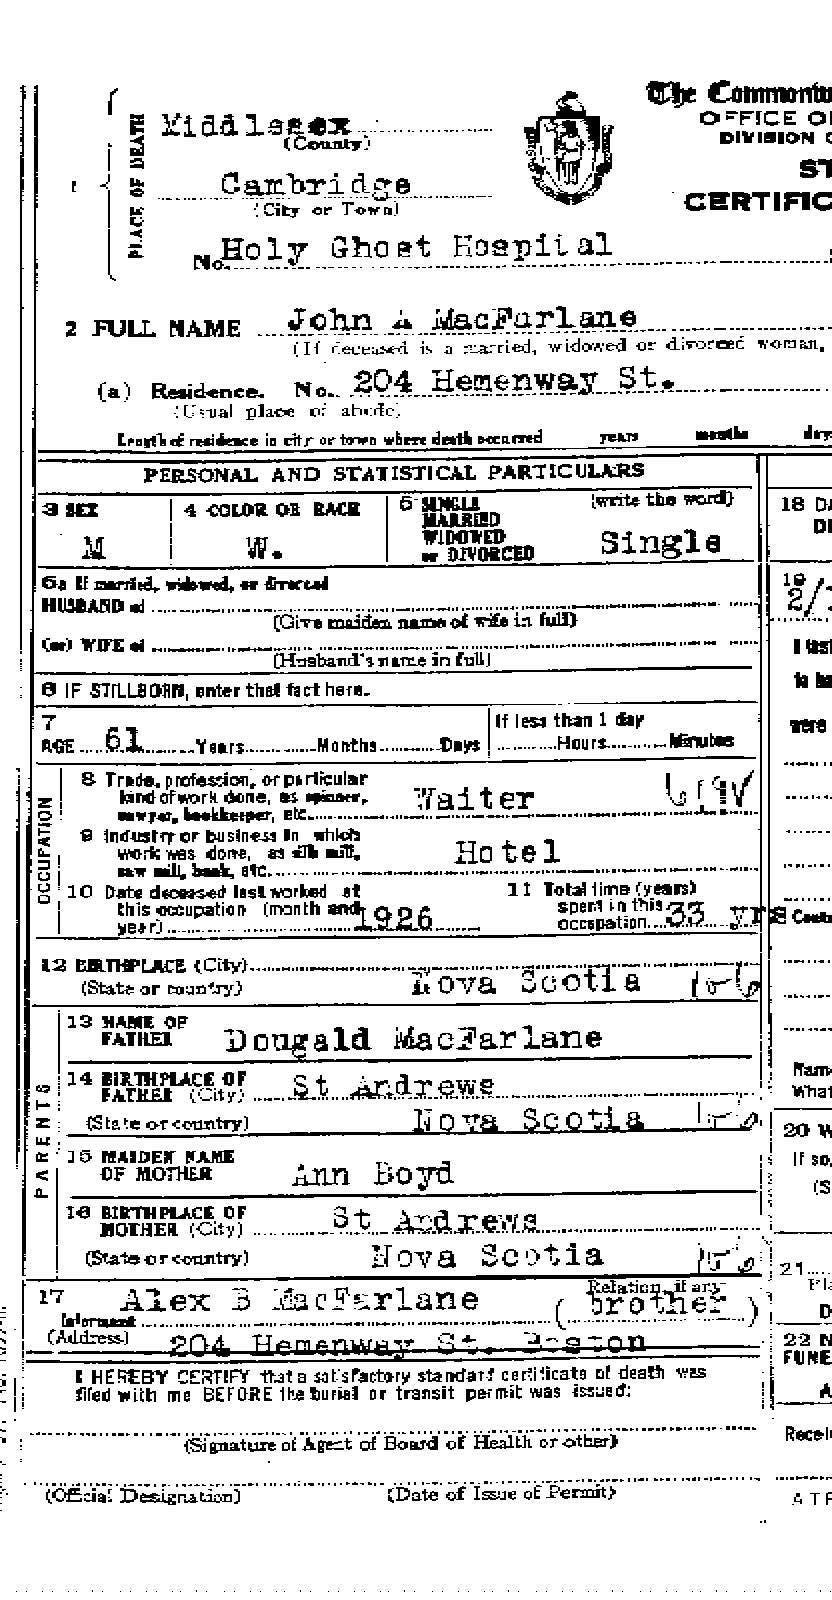 The Commonw
OFFICE O
DIVISION O
ST
CERTIFIC
1
PLACE OF DEATH
Middlesex
(County)
Cambridge
(City or Town)
No. Holy Ghost Hospital
2 FULL NAME John A MacFarlane
(If deceased is a married, widowed or divorced woman,
(a) Residence. No. 204 Hemenway St.
(Usual place of abode)
Length of residence in city or town where death occurred years months day
PERSONAL AND STATISTICAL PARTICULARS
3 SEX
M
4 COLOR OR RACE
W.
5 SINGLE
MARRIED
WIDOWED
or DIVORCED
(write the word)
Single
5a If married, widowed, or divorced
HUSBAND of
(Give maiden name of wife in full)
(or) WIFE of
(Husband's name in full)
6 IF STILLBORN, enter that fact here.
7
AGE 61 Years Months Days
If less than 1 day
Hours Minutes
OCCUPATION
8 Trade, profession, or particular
kind of work done, as spinner,
sawyer, bookkeeper, etc. Waiter
9 Industry or business in which
work was done, as silk mill,
saw mill, bank, etc. Hotel
10 Date deceased last worked at
this occupation (month and
year) 1926
11 Total time (years)
spent in this
occupation 33 yrs
12 BIRTHPLACE (City)
(State or country) Nova Scotia
PARENTS
13 NAME OF
FATHER Dougald MacFarlane
14 BIRTHPLACE OF
FATHER (City) St Andrews
(State or country) Nova Scotia
15 MAIDEN NAME
OF MOTHER Ann Boyd
16 BIRTHPLACE OF
MOTHER (City) St Andrews
(State or country) Nova Scotia
17
Informant Alex B MacFarlane
Relation, if any
(brother)
(Address) 204 Hemenway St. Boston
I HEREBY CERTIFY that a satisfactory standard certificate of death was
filed with me BEFORE the burial or transit permit was issued:
(Signature of Agent of Board of Health or other)
(Official Designation) (Date of Issue of Permit)
18 DA
DE
19
2/
I last
to ha
were
Cont
Nam
What
20 W
If so,
(S
21
Pla
D
22 N
FUNE
A
Recei
A T R